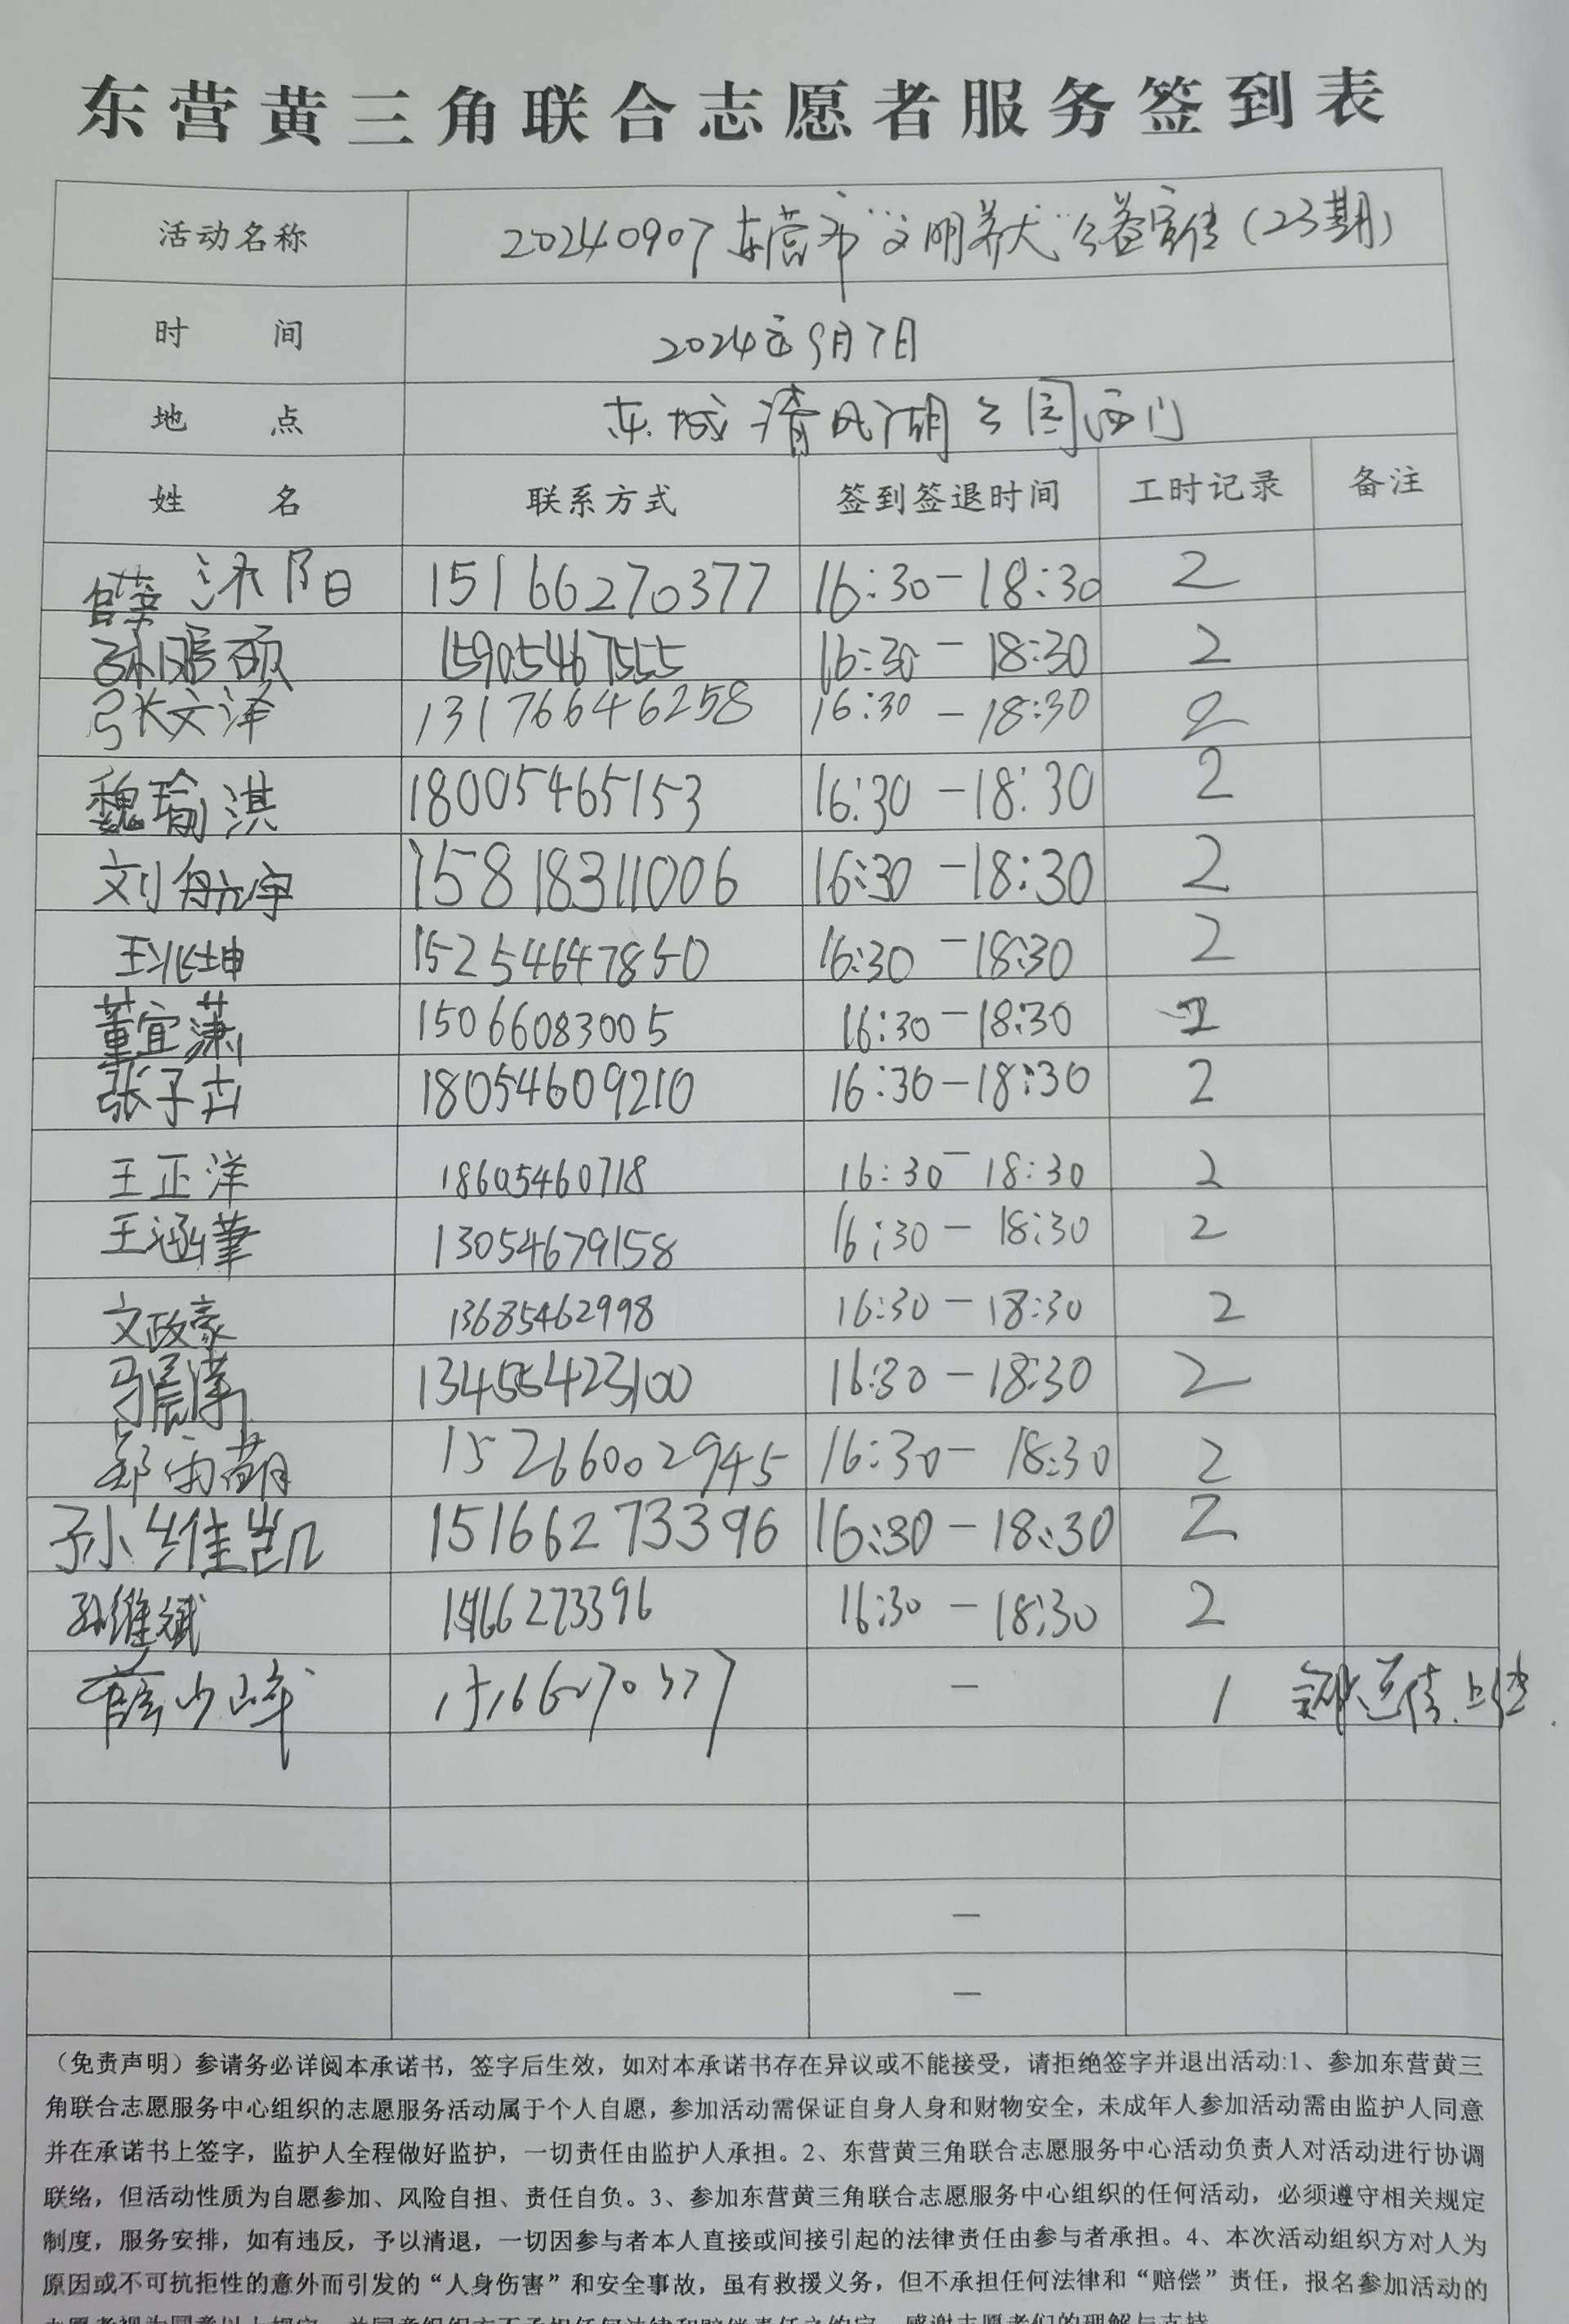 东营黄三角联合志愿者服务签到表
活动名称 20240907东营市“文明养犬”公益宣传(23期)
时 间 2024年9月7日
地 点 东城清风湖公园西门
姓 名 联系方式 签到签退时间 工时记录 备注
薛沐阳 15166270377 16:30-18:30 2
孙鹏硕 15905467555 16:30-18:30 2
张文泽 13176646258 16:30-18:30 2
魏瑜淇 18005465153 16:30-18:30 2
刘航宇 15818311006 16:30-18:30 2
王兆坤 15254647850 16:30-18:30 2
董宜潇 15066083005 16:30-18:30 2
张子卉 18054609210 16:30-18:30 2
王正洋 18605460718 16:30-18:30 2
王涵 13054679158 16:30-18:30 2
文政豪 13685462998 16:30-18:30 2
马晨 13455423100 16:30-18:30 2
郑雨萌 15266002945 16:30-18:30 2
孙维凯 15166273396 16:30-18:30 2
孙维斌 15166273396 16:30-18:30 2
薛少峰 15166270377 - 1
-
-
（免责声明）参请务必详阅本承诺书，签字后生效，如对本承诺书存在异议或不能接受，请拒绝签字并退出活动:1、参加东营黄三
角联合志愿服务中心组织的志愿服务活动属于个人自愿，参加活动需保证自身人身和财物安全，未成年人参加活动需由监护人同意
并在承诺书上签字，监护人全程做好监护，一切责任由监护人承担。2、东营黄三角联合志愿服务中心活动负责人对活动进行协调
联络，但活动性质为自愿参加、风险自担、责任自负。3、参加东营黄三角联合志愿服务中心组织的任何活动，必须遵守相关规定
制度，服务安排，如有违反，予以清退，一切因参与者本人直接或间接引起的法律责任由参与者承担。4、本次活动组织方对人为
原因或不可抗拒性的意外而引发的“人身伤害”和安全事故，虽有救援义务，但不承担任何法律和“赔偿”责任，报名参加活动的